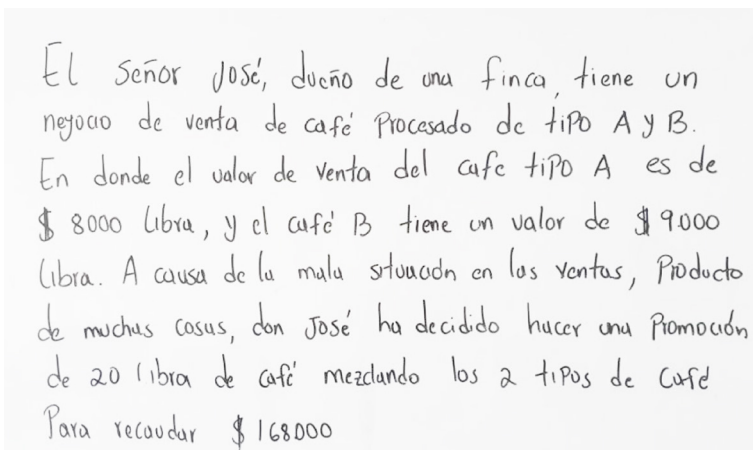 El señor José, dueño de una finca, tiene un
negocio de venta de café Procesado de tipo A y B.
En donde el valor de venta del cafe tipo A es de
$ 8000 libra, y el café B tiene un valor de $ 9.000
libra. A causa de la mala situación en las ventas, Producto
de muchas cosas, don José ha decidido hacer una Promoción
de 20 libra de café mezclando los 2 tipos de Café
Para recaudar $ 168000